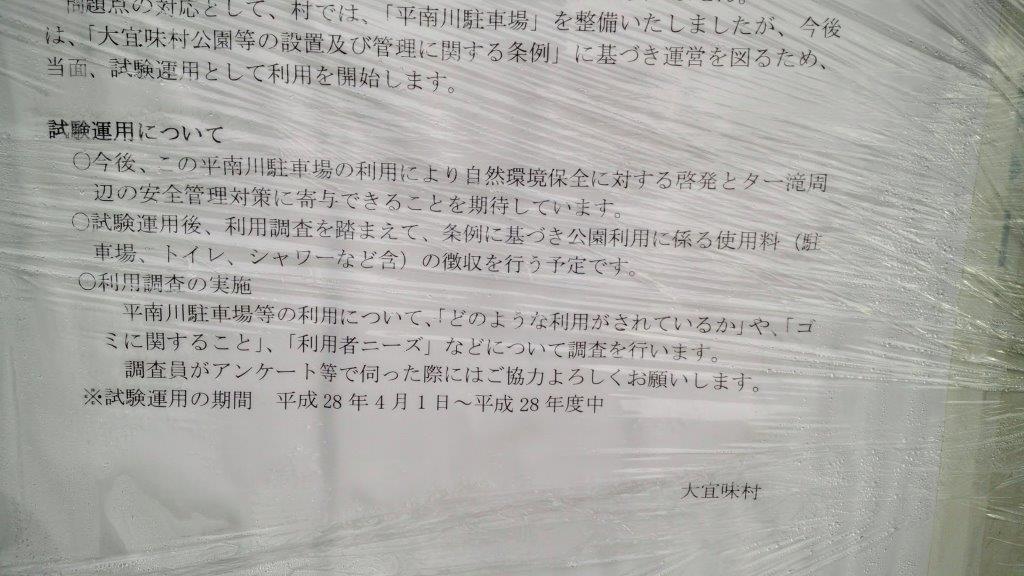 問題点の対応として、村では、「平南川駐車場」を整備いたしましたが、今後
は、「大宜味村公園等の設置及び管理に関する条例」に基づき運営を図るため、
当面、試験運用として利用を開始します。
試験運用について
○今後、この平南川駐車場の利用により自然環境保全に対する啓発とター滝周
辺の安全管理対策に寄与できることを期待しています。
○試験運用後、利用調査を踏まえて、条例に基づき公園利用に係る使用料（駐
車場、トイレ、シャワーなど含）の徴収を行う予定です。
○利用調査の実施
平南川駐車場等の利用について、「どのような利用がされているか」や、「ゴ
ミに関すること」、「利用者ニーズ」などについて調査を行います。
調査員がアンケート等で伺った際にはご協力よろしくお願いします。
※試験運用の期間　平成28年4月1日～平成28年度中
大宜味村